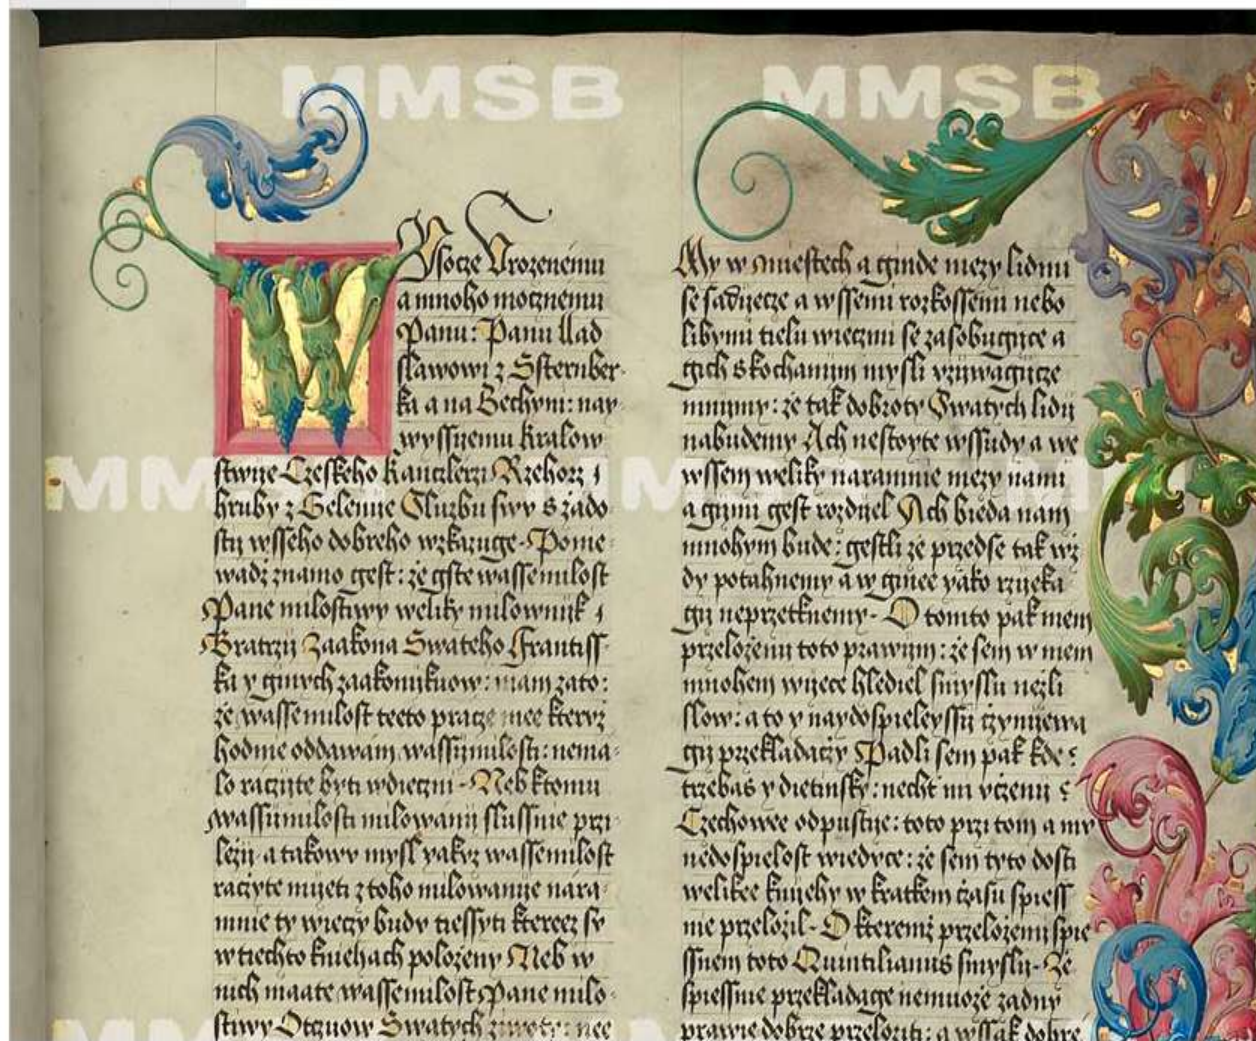 MMSB MMSB
Wysocze Urozenému
a mnoho mocznemu
Panu: Panu Llad
slawowi z Ssternber-
ka a na Bechyni: nay-
wyssijemu kralow
stwije Czeskeho Kanczlerzi Rzehorz
hruby z Gelenie Sluzbu swy s żado
stij wsseho dobreho wzkazuge. Pone-
wadż znamo gest: że gste wasse milost
Pane milostiwy weliky milownijk
Bratrzij Zaakona Swateho Frantiss-
ka y ginych zaakonijkuow: mam zato:
że wasse milost teeto pracze mee ktervż
hodnie oddawam wassij milosti: nema-
lo raczite byti wdieczni. Neb k tomu
wassij milosti milowanij slussnie przi-
leżij a takowy mysl yakyż wasse milost
raczyte mijeti z toho milowanije nára-
mnie ty wieczy budv tiessyti kterecz sv
w tiechto kniehach położeny Neb w
nich maate wasse milost Pane milo-
stiwy Otczuow Swatych żiwoty: nee
My w miestech a ginde mezy lidmi
se sadijecze a wssemi rozkossemi nebo
libymi tielu wieczmi se zasobugijce a
gich s kochanijm mysli vżiwagijcze
mnijmy: że tak dobroty Swatych lidij
nabudemy Ach nestoyte wssudy a we
wssem weliky naramnie mezy nami
a gijmi gest rozdijel Ach bieda nam
mnohym bude: gestli że przedse tak wż
dy potahnemy a w ginee yako rzijeka
gij neprzetknemy. O tomto pak mem
przelożenij toto prawijm: że sem w niem
mnohem wijece hlediel smyslu neżli
slow: a to y naydospieleyssij czynijewa
gij przekladaczy Padli sem pak kde
trzebas y dietinsky: necht mi vczenij
Czechowee odpustije: toto przi tom a my
nedospielost wiedvce: że sem tyto dosti
welikee kniehy w kratkem czasu spiess
nie przelożil. O kteremż przelożenij spie
ssnem toto Quintilianus smysli. Że
spiessnie przekladage nemuoże żadny
prawie dobrze przelożiti: a wssak dobrze